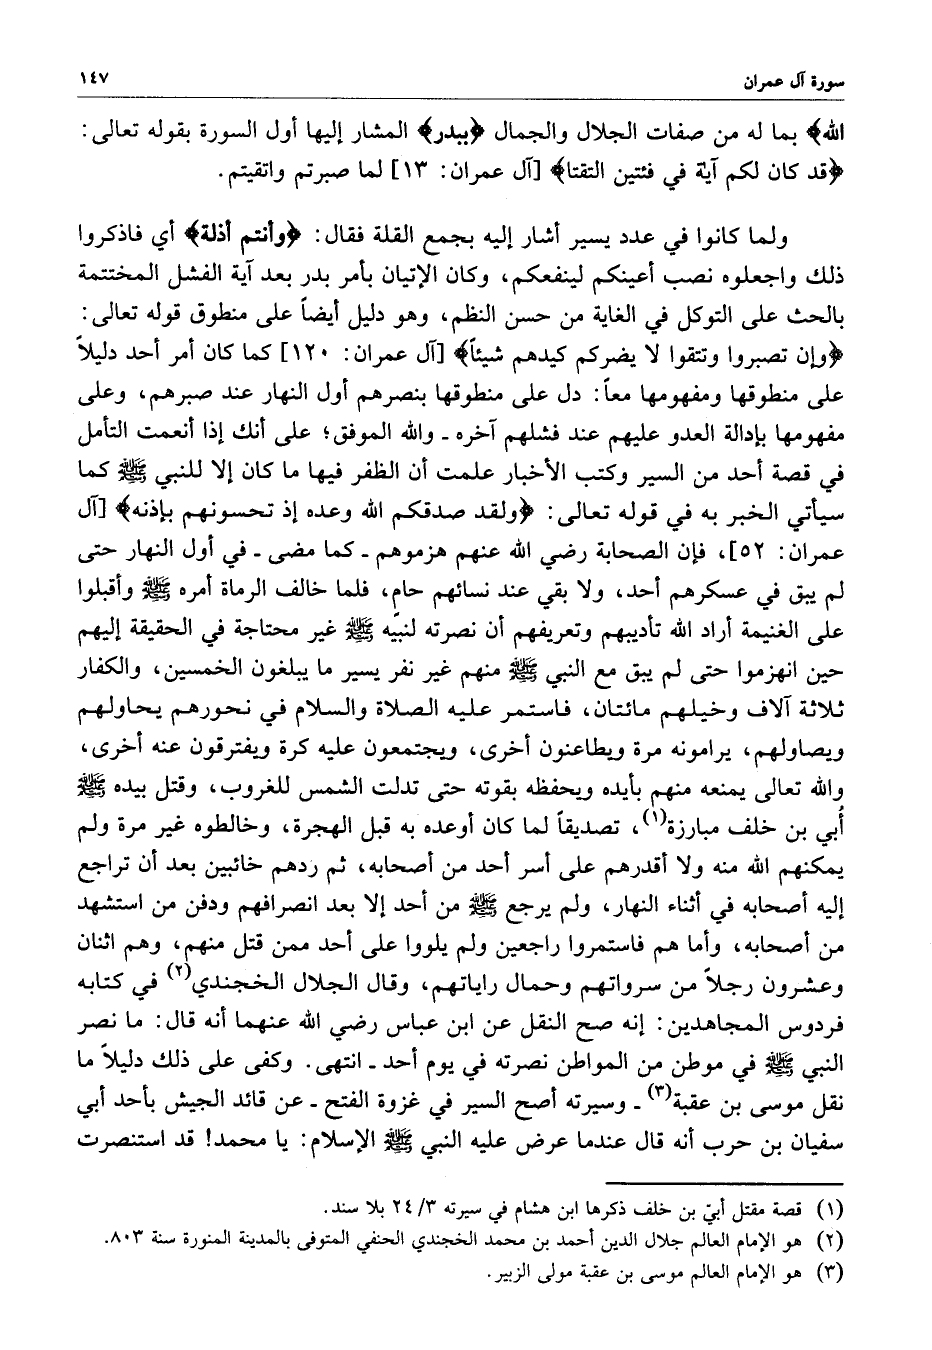 سورة آل عمران
١٤٧
الله﴾ بما له من صفات الجلال والجمال ﴿ببدر﴾ المشار إليها أول السورة بقوله تعالى:
﴿قد كان لكم آية في فئتين التقتا﴾ [آل عمران: ١٣] لما صبرتم واتقيتم.
ولما كانوا في عدد يسير أشار إليه بجمع القلة فقال: ﴿وأنتم أذلة﴾ أي فاذكروا
ذلك واجعلوه نصب أعينكم لينفعكم، وكان الإتيان بأمر بدر بعد آية الفشل المختتمة
بالحث على التوكل في الغاية من حسن النظم، وهو دليل أيضاً على منطوق قوله تعالى:
﴿وإن تصبروا وتتقوا لا يضركم كيدهم شيئاً﴾ [آل عمران: ١٢٠] كما كان أمر أحد دليلاً
على منطوقها ومفهومها معاً: دل على منطوقها بنصرهم أول النهار عند صبرهم، وعلى
مفهومها بإدالة العدو عليهم عند فشلهم آخره ـ والله الموفق؛ على أنك إذا أنعمت التأمل
في قصة أحد من السير وكتب الأخبار علمت أن الظفر فيها ما كان إلا للنبي ﷺ كما
سيأتي الخبر به في قوله تعالى: ﴿ولقد صدقكم الله وعده إذ تحسونهم بإذنه﴾ [آل
عمران: ٥٢]، فإن الصحابة رضي الله عنهم هزموهم ـ كما مضى ـ في أول النهار حتى
لم يبق في عسكرهم أحد، ولا بقي عند نسائهم حامٍ، فلما خالف الرماة أمره ﷺ وأقبلوا
على الغنيمة أراد الله تأديبهم وتعريفهم أن نصرته لنبيه ﷺ غير محتاجة في الحقيقة إليهم
حين انهزموا حتى لم يبق مع النبي ﷺ منهم غير نفر يسير ما يبلغون الخمسين، والكفار
ثلاثة آلاف وخيلهم مائتان، فاستمر عليه الصلاة والسلام في نحورهم يحاولهم
ويصاولهم، يرامونه مرة ويطاعنون أخرى، ويجتمعون عليه كرة ويفترقون عنه أخرى،
والله تعالى يمنعه منهم بأيده ويحفظه بقوته حتى تدلت الشمس للغروب، وقتل بيده ﷺ
أُبي بن خلف مبارزة(١)، تصديقاً لما كان أوعده به قبل الهجرة، وخالطوه غير مرة ولم
يمكنهم الله منه ولا أقدرهم على أسر أحد من أصحابه، ثم ردهم خائبين بعد أن تراجع
إليه أصحابه في أثناء النهار، ولم يرجع ﷺ من أحد إلا بعد انصرافهم ودفن من استشهد
من أصحابه، وأما هم فاستمروا راجعين ولم يلووا على أحد ممن قتل منهم، وهم اثنان
وعشرون رجلاً من سرواتهم وحمال راياتهم، وقال الجلال الخجندي(٢) في كتابه
فردوس المجاهدين: إنه صح النقل عن ابن عباس رضي الله عنهما أنه قال: ما نصر
النبي ﷺ في موطن من المواطن نصرته في يوم أحد ـ انتهى. وكفى على ذلك دليلاً ما
نقل موسى بن عقبة(٣) ـ وسيرته أصح السير في غزوة الفتح ـ عن قائد الجيش بأحد أبي
سفيان بن حرب أنه قال عندما عرض عليه النبي ﷺ الإسلام: يا محمد! قد استنصرت
(١) قصة مقتل أبيّ بن خلف ذكرها ابن هشام في سيرته ٣/ ٢٤ بلا سند.
(٢) هو الإمام العالم جلال الدين أحمد بن محمد الخجندي الحنفي المتوفى بالمدينة المنورة سنة ٨٠٣.
(٣) هو الإمام العالم موسى بن عقبة مولى الزبير.